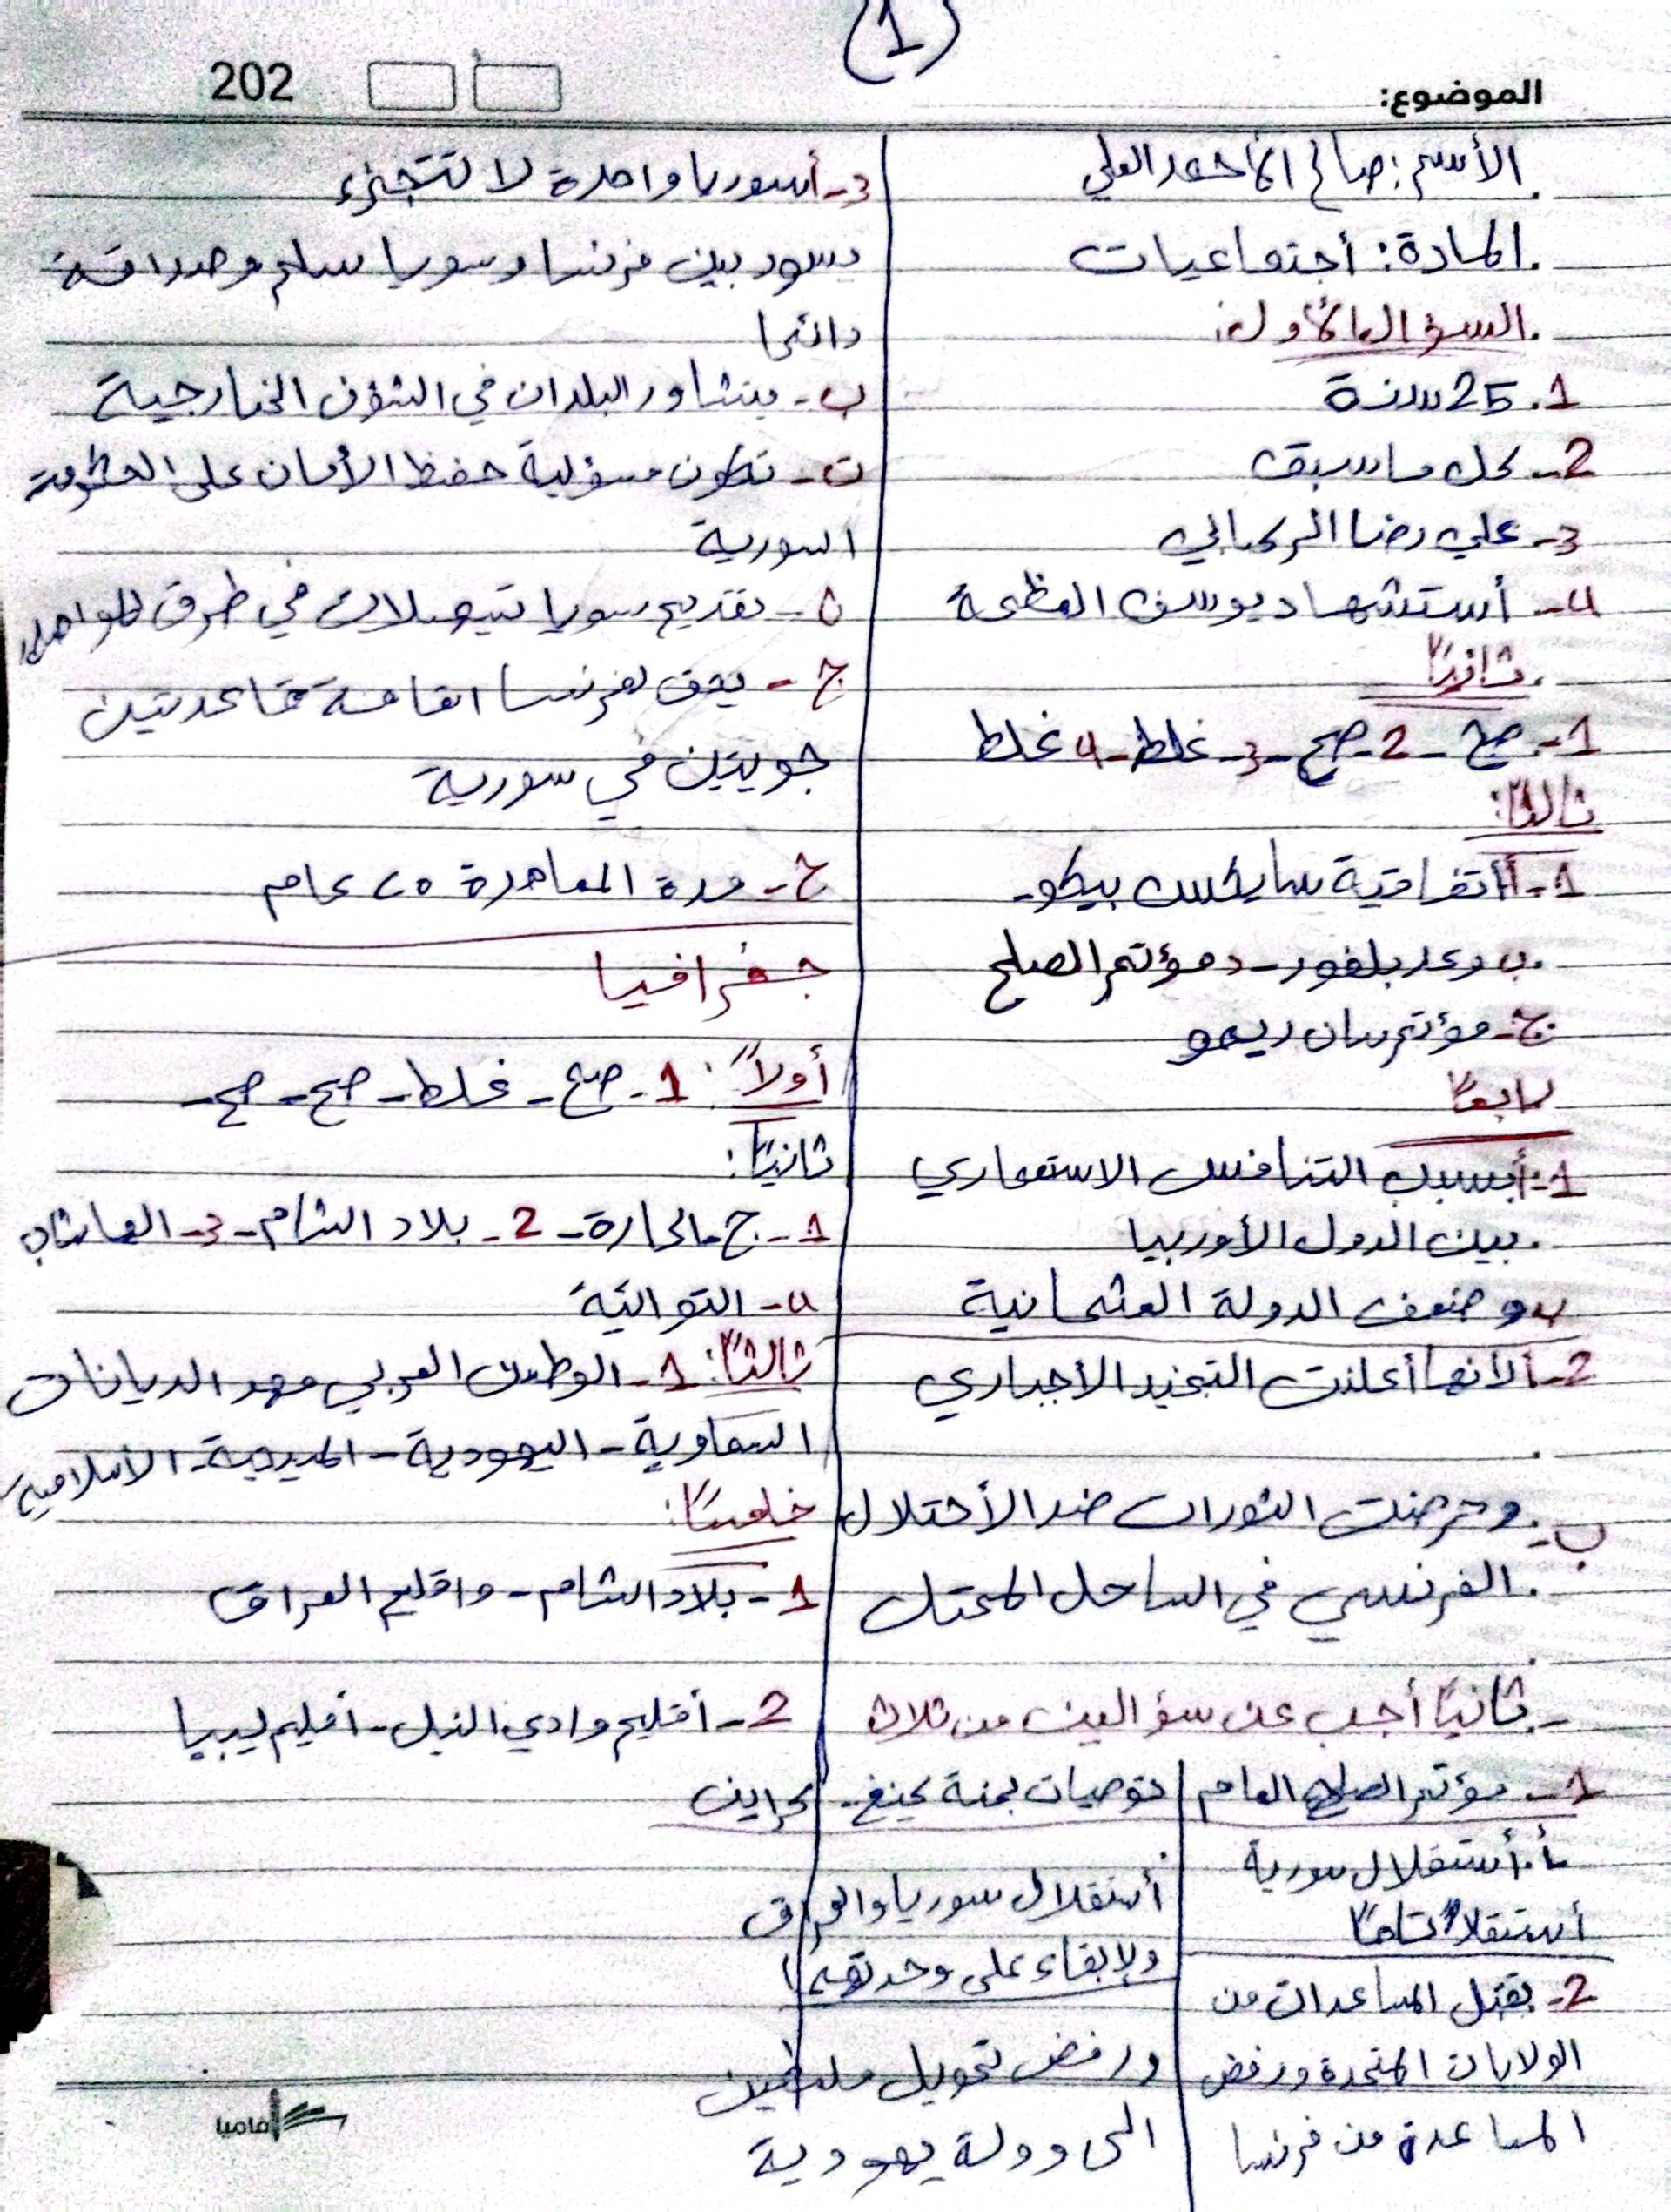 (1)
الموضوع:
202
الأسم: صالح الأحمد العلي
.المادة: أجتماعيات
.السؤال الأول:
1. 25 سنة
2- كل ما سبق
3- علي رضا الركابي
4- أستشهاد يوسف العظمة
ثانيًا
1- صح - 2- صح - 3- غلط - 4 غلط
ثالثًا:
1- أ اتفاقية سايكس بيكو-
ب وعد بلفور - د مؤتمر الصلح
ج- مؤتمر سان ريمو
رابعًا
1- أ بسبب التنافس الاستعماري
بين الدول الأوربيا
ب وضعف الدولة العثمانية
2- أ لانها أعلنت التجنيد الأجباري
ب- وحرضت الثورات ضد الأحتلال
الفرنسي في الساحل المحتل
- ثانيًا أجب عن سؤالين من ثلاث
1- مؤتمر الصلح العام
أ- أستقلال سورية
أستقلالًا تامًا
2- بقتل المساعدات من
الولايات المتحدة ورفض
المساعدة من فرنسا
توصيات لجنة كينغ- كراين
أستقلال سوريا والعراق
والابقاء على وحدتهما
ورفض تحويل فلسطين
الى دولة يهودية
3- أ سوريا واحدة لا تتجزء
يسود بين فرنسا وسوريا سلم وصداقة
دائما
ب- يتشاور البلدان في الشؤن الخارجية
ت- تكون مسؤلية حفظ الأمان على الحكومة
السورية
ث- تقديم سوريا تسهيلات في طرق المواصلات
ج- يحق لفرنسا اقامة قاعدتين
جويتين في سورية
ح- مدة المعاهدة ٢٥ عام
جغرافيا
أولًا: 1- صح - غلط - صح - صح -
ثانيًا:
1- ج- الحارة - 2- بلاد الشام - 3- العاشاب
4- التوالية
ثالثًا: 1- الوطن العربي مهد الديانات
السماوية - اليهودية - المسيحية - الاسلامية
خامسًا:
1- بلاد الشام - واقليم العراق
2- أقليم وادي النيل - أقليم ليبيا
فاميا